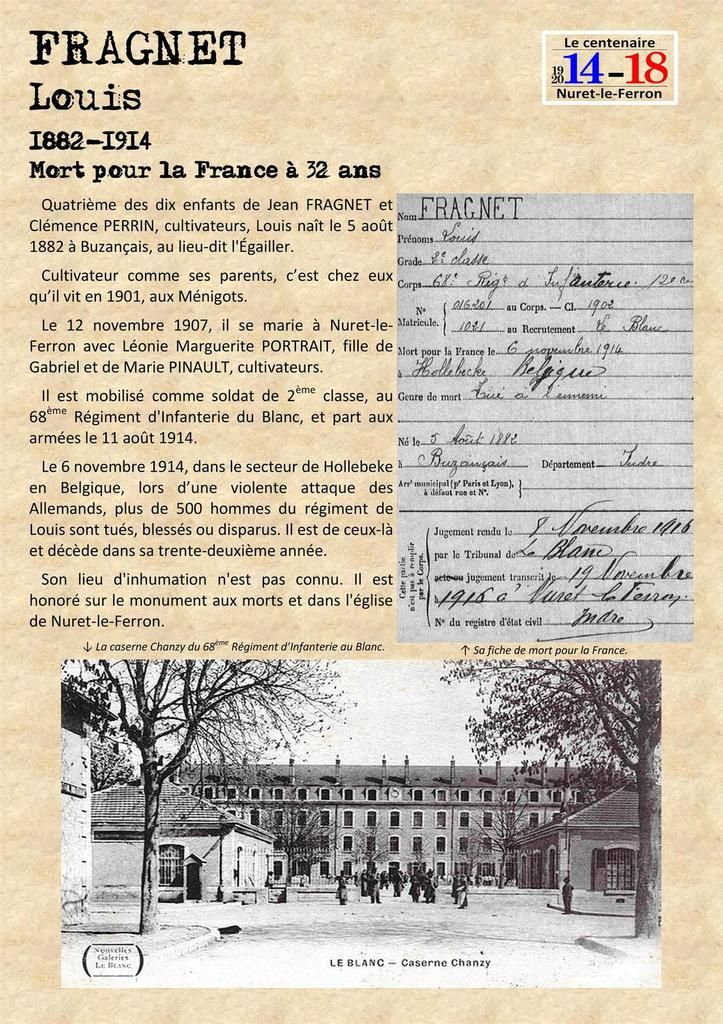 FRAGNET
Louis
1882-1914
Mort pour la France à 32 ans
Le centenaire
19
20
14-18
Nuret-le-Ferron
Quatrième des dix enfants de Jean FRAGNET et
Clémence PERRIN, cultivateurs, Louis naît le 5 août
1882 à Buzançais, au lieu-dit l'Égailler.
Cultivateur comme ses parents, c’est chez eux
qu’il vit en 1901, aux Ménigots.
Le 12 novembre 1907, il se marie à Nuret-le-
Ferron avec Léonie Marguerite PORTRAIT, fille de
Gabriel et de Marie PINAULT, cultivateurs.
Il est mobilisé comme soldat de 2ème classe, au
68ème Régiment d'Infanterie du Blanc, et part aux
armées le 11 août 1914.
Le 6 novembre 1914, dans le secteur de Hollebeke
en Belgique, lors d’une violente attaque des
Allemands, plus de 500 hommes du régiment de
Louis sont tués, blessés ou disparus. Il est de ceux-là
et décède dans sa trente-deuxième année.
Son lieu d'inhumation n'est pas connu. Il est
honoré sur le monument aux morts et dans l'église
de Nuret-le-Ferron.
Nom FRAGNET
Prénoms Louis
Grade 2e classe
Corps 68e Régt d'Infanterie
N° 016201 au Corps. — Cl. 1902
Matricule. 1021 au Recrutement Le Blanc
Mort pour la France le 6 novembre 1914
à Hollebecke Belgique
Genre de mort Tué à l'ennemi
Né le 5 Août 1882
à Buzançais Département Indre
Arrt municipal (pr Paris et Lyon),
à défaut rue et N°.
Cette partie
n'est pas à remplir
par le Corps.
Jugement rendu le 8 Novembre 1916
par le Tribunal de Le Blanc
acte ou jugement transcrit le 19 Novembre
à 1916 à Nuret le Ferron
N° du registre d'état civil Indre
↓ La caserne Chanzy du 68ème Régiment d’Infanterie au Blanc.
↑ Sa fiche de mort pour la France.
Nouvelles
Galeries
Le Blanc
LE BLANC — Caserne Chanzy